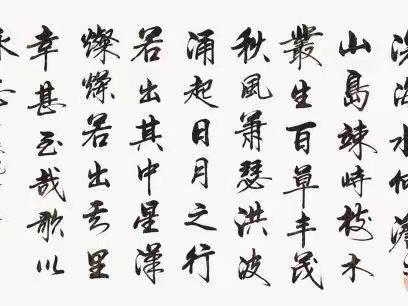 海水何澹
山島竦峙树木
叢生百草丰茂
秋風蕭瑟洪波
涌起日月之行
若出其中星漢
燦爛若出其里
幸甚至哉歌以
志